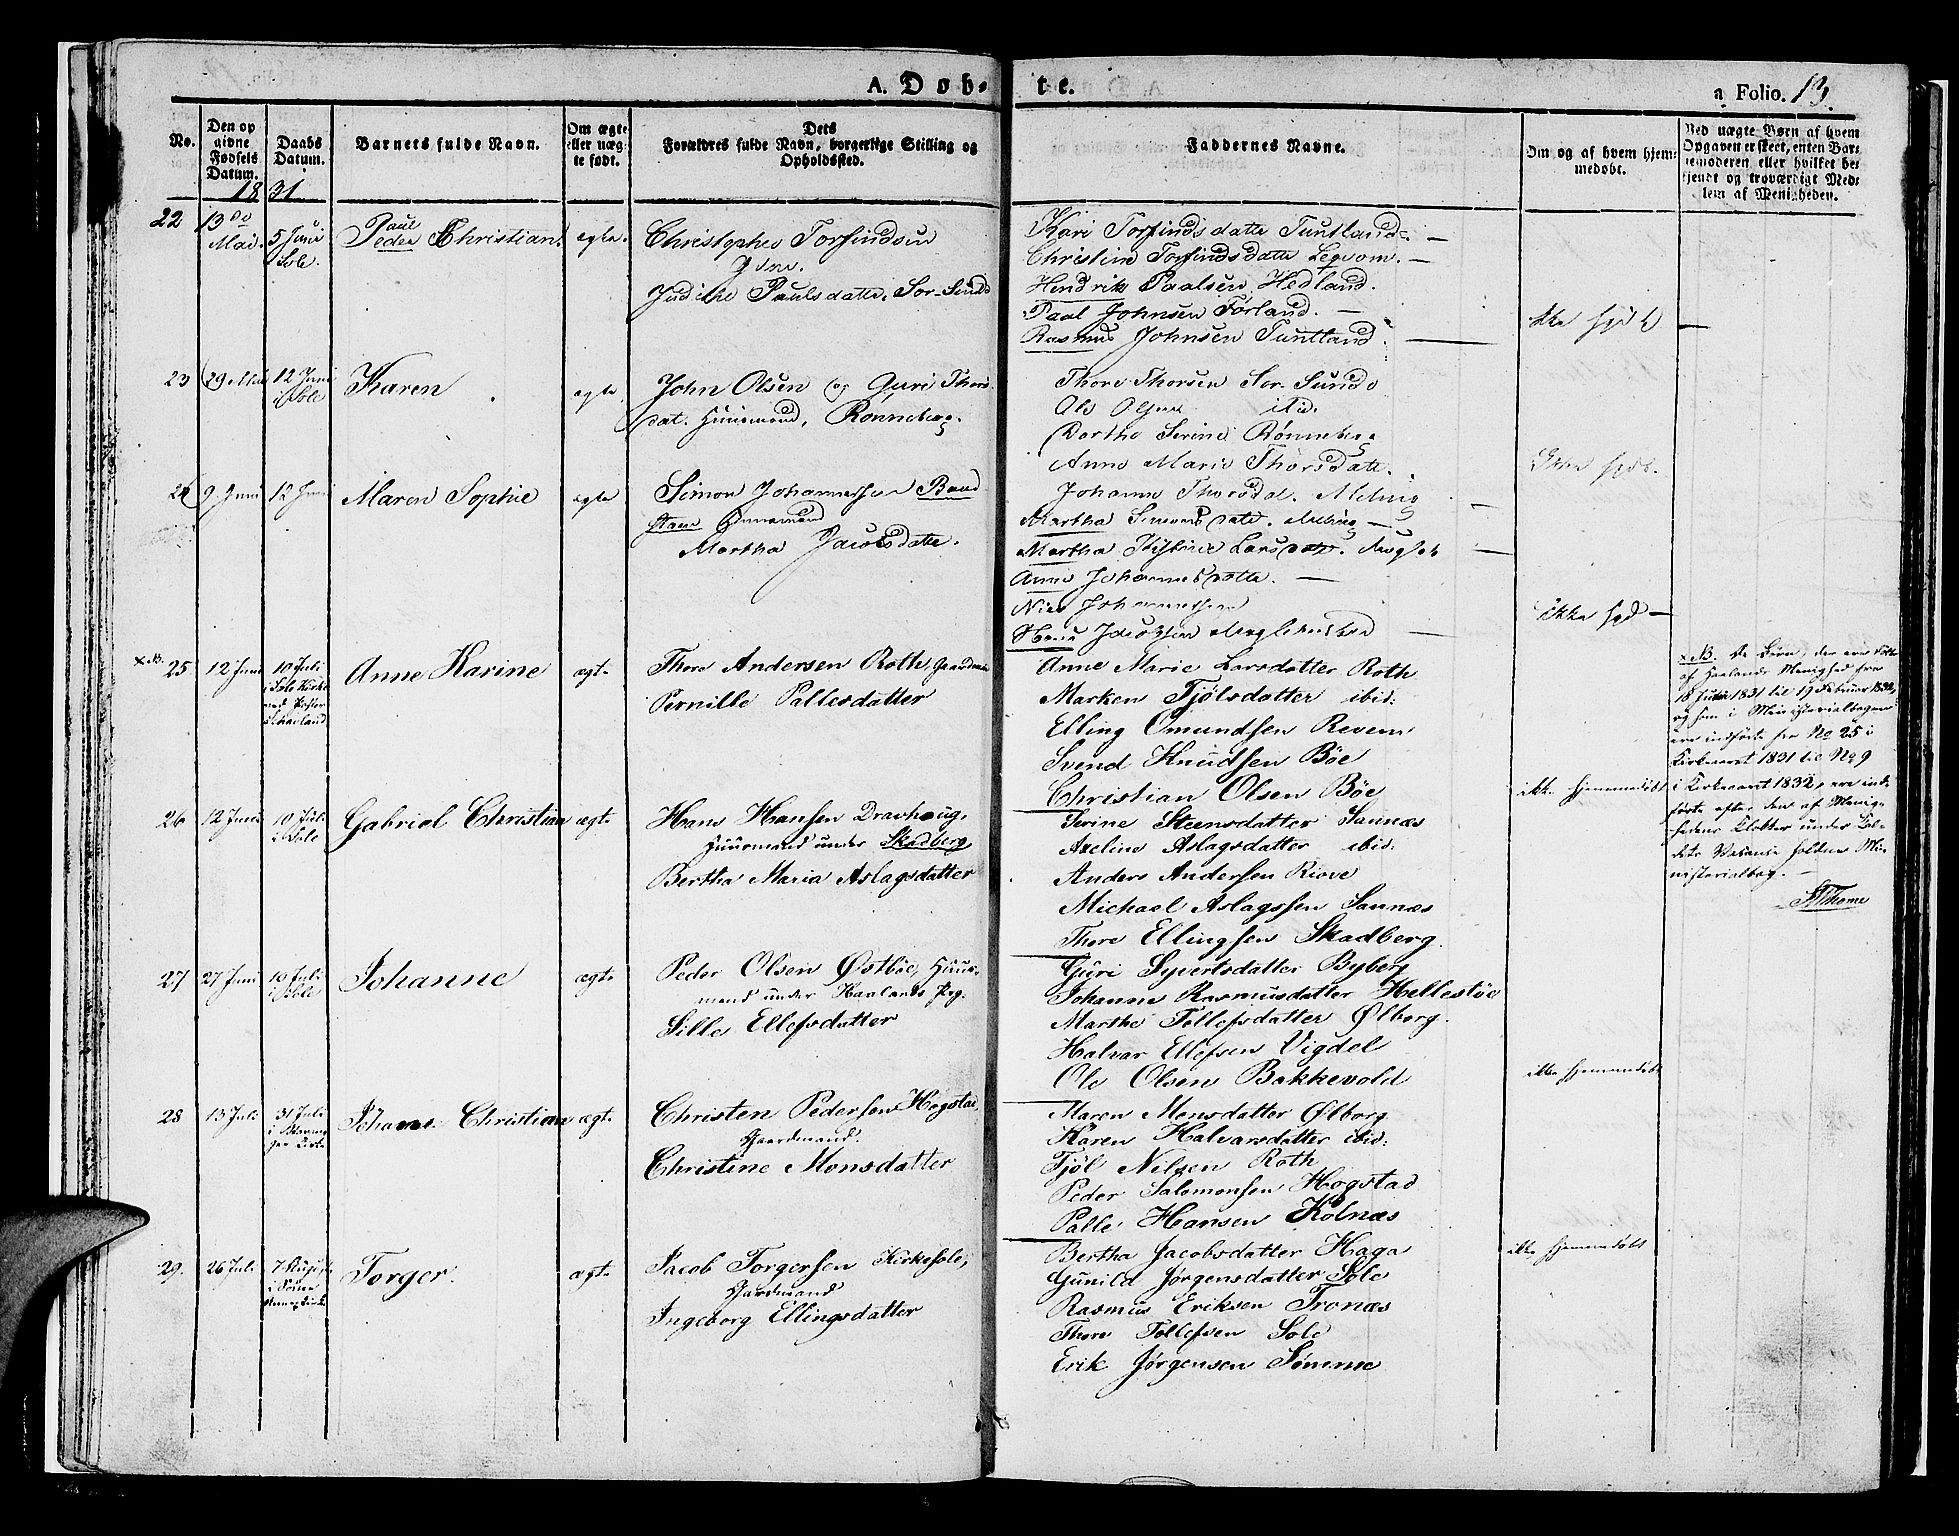 A. Døb- te.
a Folio. 13.
No.
Den op
givne
Fødsels
Datum.
Daabs
Datum.
Barnets fulde Navn.
Om ægte
eller uæg-
te født.
Dets
Forældres fulde Navn, borgerlige Stilling og
Opholdssted.
Faddernes Navne.
Om og af hvem hjem-
medøbt.
Ved uægte Børn af hvem
Opgaven er skeet, enten Bar-
nemoderen eller hvilket be-
kjendt og troværdigt Med-
lem af Menigheden.
1831.
22 13de Mai. 5 Juni Sole. Paul Peder Christian. ægte.
Christopher Torfindsen
Judithe Paulsdatter, Sør-Sunde
Kari Torfindsdatter Tuntland. —
Christine Torfindsdatte —
Hendrik Paalsen Hedland.
Paal Johnsen Førland. —
Rasmus Johnsen Tuntland. —
ikke
23 29 Mai 12 Juni i Sole Karen ægte
John Olsen og Guri Thors-
dat. Huusmand, Rønneberg.
Thore Thorsen Sør-Sunde
Ole Olsen ibid.
Dorthe Serine Rønneberg
Anne Marie Thorsdatter.
24 9 Juni 12 Juni Maren Sophie ægte
Simon Johannessen
Huusmand
Martha Jacobsdatte.
Johanne Thorsdat. Melling
Martha Simonsdatt. Melling —
Martha Larsdatter. —
Anne Johannesdatte. —
Niels Johannessen
Hans Jacobsen —
ikke —
x NB.
25 12 Juni 10 Juli i Sole Kirke
Anne Karine ægte
Thore Andersen Roth, Gaardmand
Pernille Pallesdatter
Anne Marie Larsdatter Roth
Marken Fjølsdatter ibid:
Elling Omundsen Revem
Svend Knudsen Bøe
Christian Olsen Bøe
ikke hjemmedøbt
x NB. De Børn, der ere døbte
af Haalands Menighed fra
18 Juni 1831 til 19 Februar 1832,
og som i Ministerialbogen
ere indførte fra No 25 i
Kirkeaaret 1831 til No 9
i Kirkeaaret 1832, ere ind-
førte efter den af Menig-
hedens Klokker under Kal-
dets Vacance holdne Mi-
nisterialbog. —
26 12 Juni 10 Juli i Sole Gabriel Christian ægte
Hans Hansen Dravhaug,
Huusmand under Skadberg
Bertha Maria Aslagsdatter
Serine Steensdatter Sannæs
Axeline Aslagsdatter ibid:
Anders Andersen Riove
Michael Aslagssen Sannæs
Thore Ellingsen Skadberg.
27 27 Juni 10 Juli i Sole Johanne ægte
Peder Olsen Østbøe, Huus-
mand under Haalands Præg.
Sille Ellefsdatter
Guri Syvertsdatter Byberg
Johanne Rasmusdatter Hellestøe
Marthe Tollefsdatter Ølborg.
Halvar Ellefsen Vigdel
Ole Olsen Bakkevold
ikke hjemmedøbt
28 13 Juli 31 Juli i Stavan-
ger Kirke
Johanne Christian ægte
Christen Pedersen Hogstad,
Gaardmand.
Christine Monsdatter
Maren Monsdatter Ølborg
Karen Halvarsdatter ibid:
Fjøl Nilsen Roth
Peder Salomonsen Hogstad
Palle Hansen Kolnæs
ikke hjemmedøbt
29. 26 Juli 7 August
Torger. ægte
Jacob Torgersen Kirkesole,
Gaardmand
Ingeborg Ellingsdatter
Bertha Jacobsdatter Haga
Gunild Jørgensdatter Sole
Rasmus Eriksen Tronæs
Thore Tollefsen Sole
Erik Jørgensen Sømme